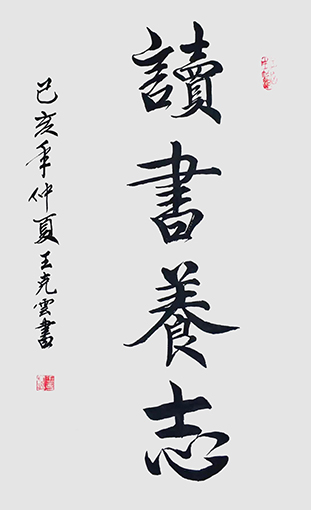 讀書養志
己亥年仲夏王克雲書